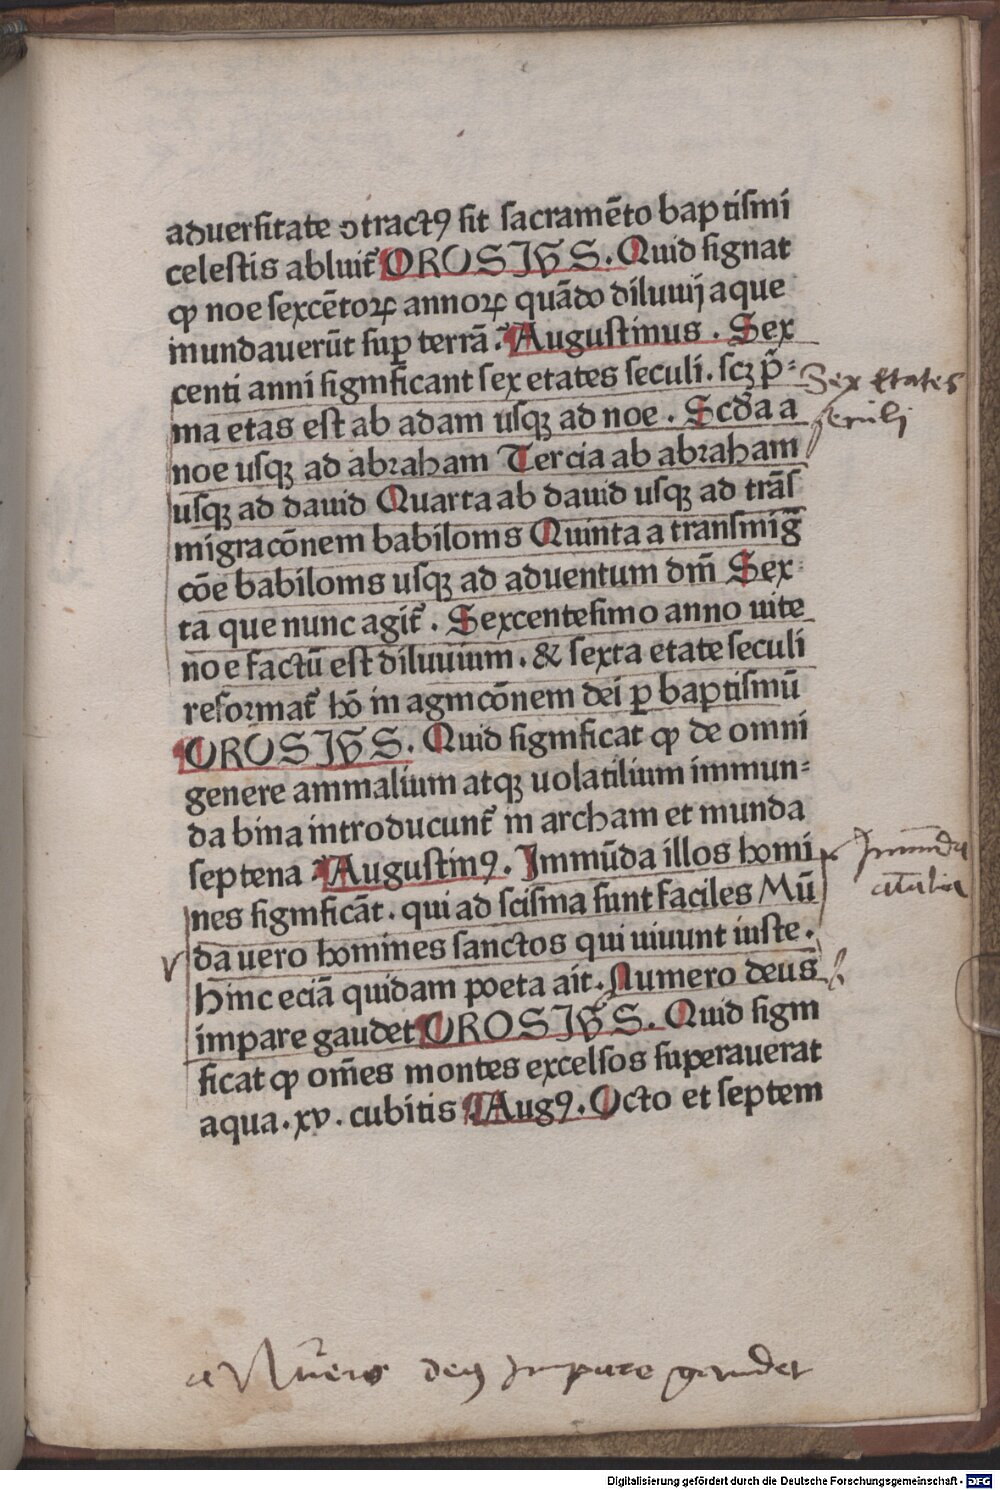 aduersitate ↄtractꝰ sit sacramēto baptismi
celestis abluit᷑ OROSIVS. Quid signat
ꝙ noe sexcētoꝝ annoꝝ quādo diluuij aque
inundauerūt suꝑ terrā. Augustinus. Sex
centi anni significant sex etates seculi. scꝫ p̄⸗
ma etas est ab adam usqꝫ ad noe. Scd̄a a
noe usqꝫ ad abraham Tercia ab abraham
usqꝫ ad dauid Quarta ab dauid usqꝫ ad trās
migracōnem babilonis Quinta a transmiḡ
cōe babilonis usqꝫ ad aduentum dn̄i Sex⸗
ta que nunc agit᷑. Sexcentesimo anno uite
noe factū est diluuium. & sexta etate seculi
reformat᷑ hō in agnicōnem dei ꝑ baptismū
OROSIVS. Quid significat ꝙ de omni
genere animalium atqꝫ uolatilium immun⸗
da bina introducunt᷑ in archam et munda
septena Augustinꝰ. Immūda illos homi
nes significāt. qui ad scisma sunt faciles Mū
da uero homines sanctos qui uiuunt iuste.
Hinc eciā quidam poeta ait. Numero deus
impare gaudet OROSIVS. Quid signi
ficat ꝙ om̄es montes excelsos superauerat
aqua. xv. cubitis Augꝰ. Octo et septem
Sex Etates
seculi
Immūda
aīalia
Nūero deꝰ Impare gaudet